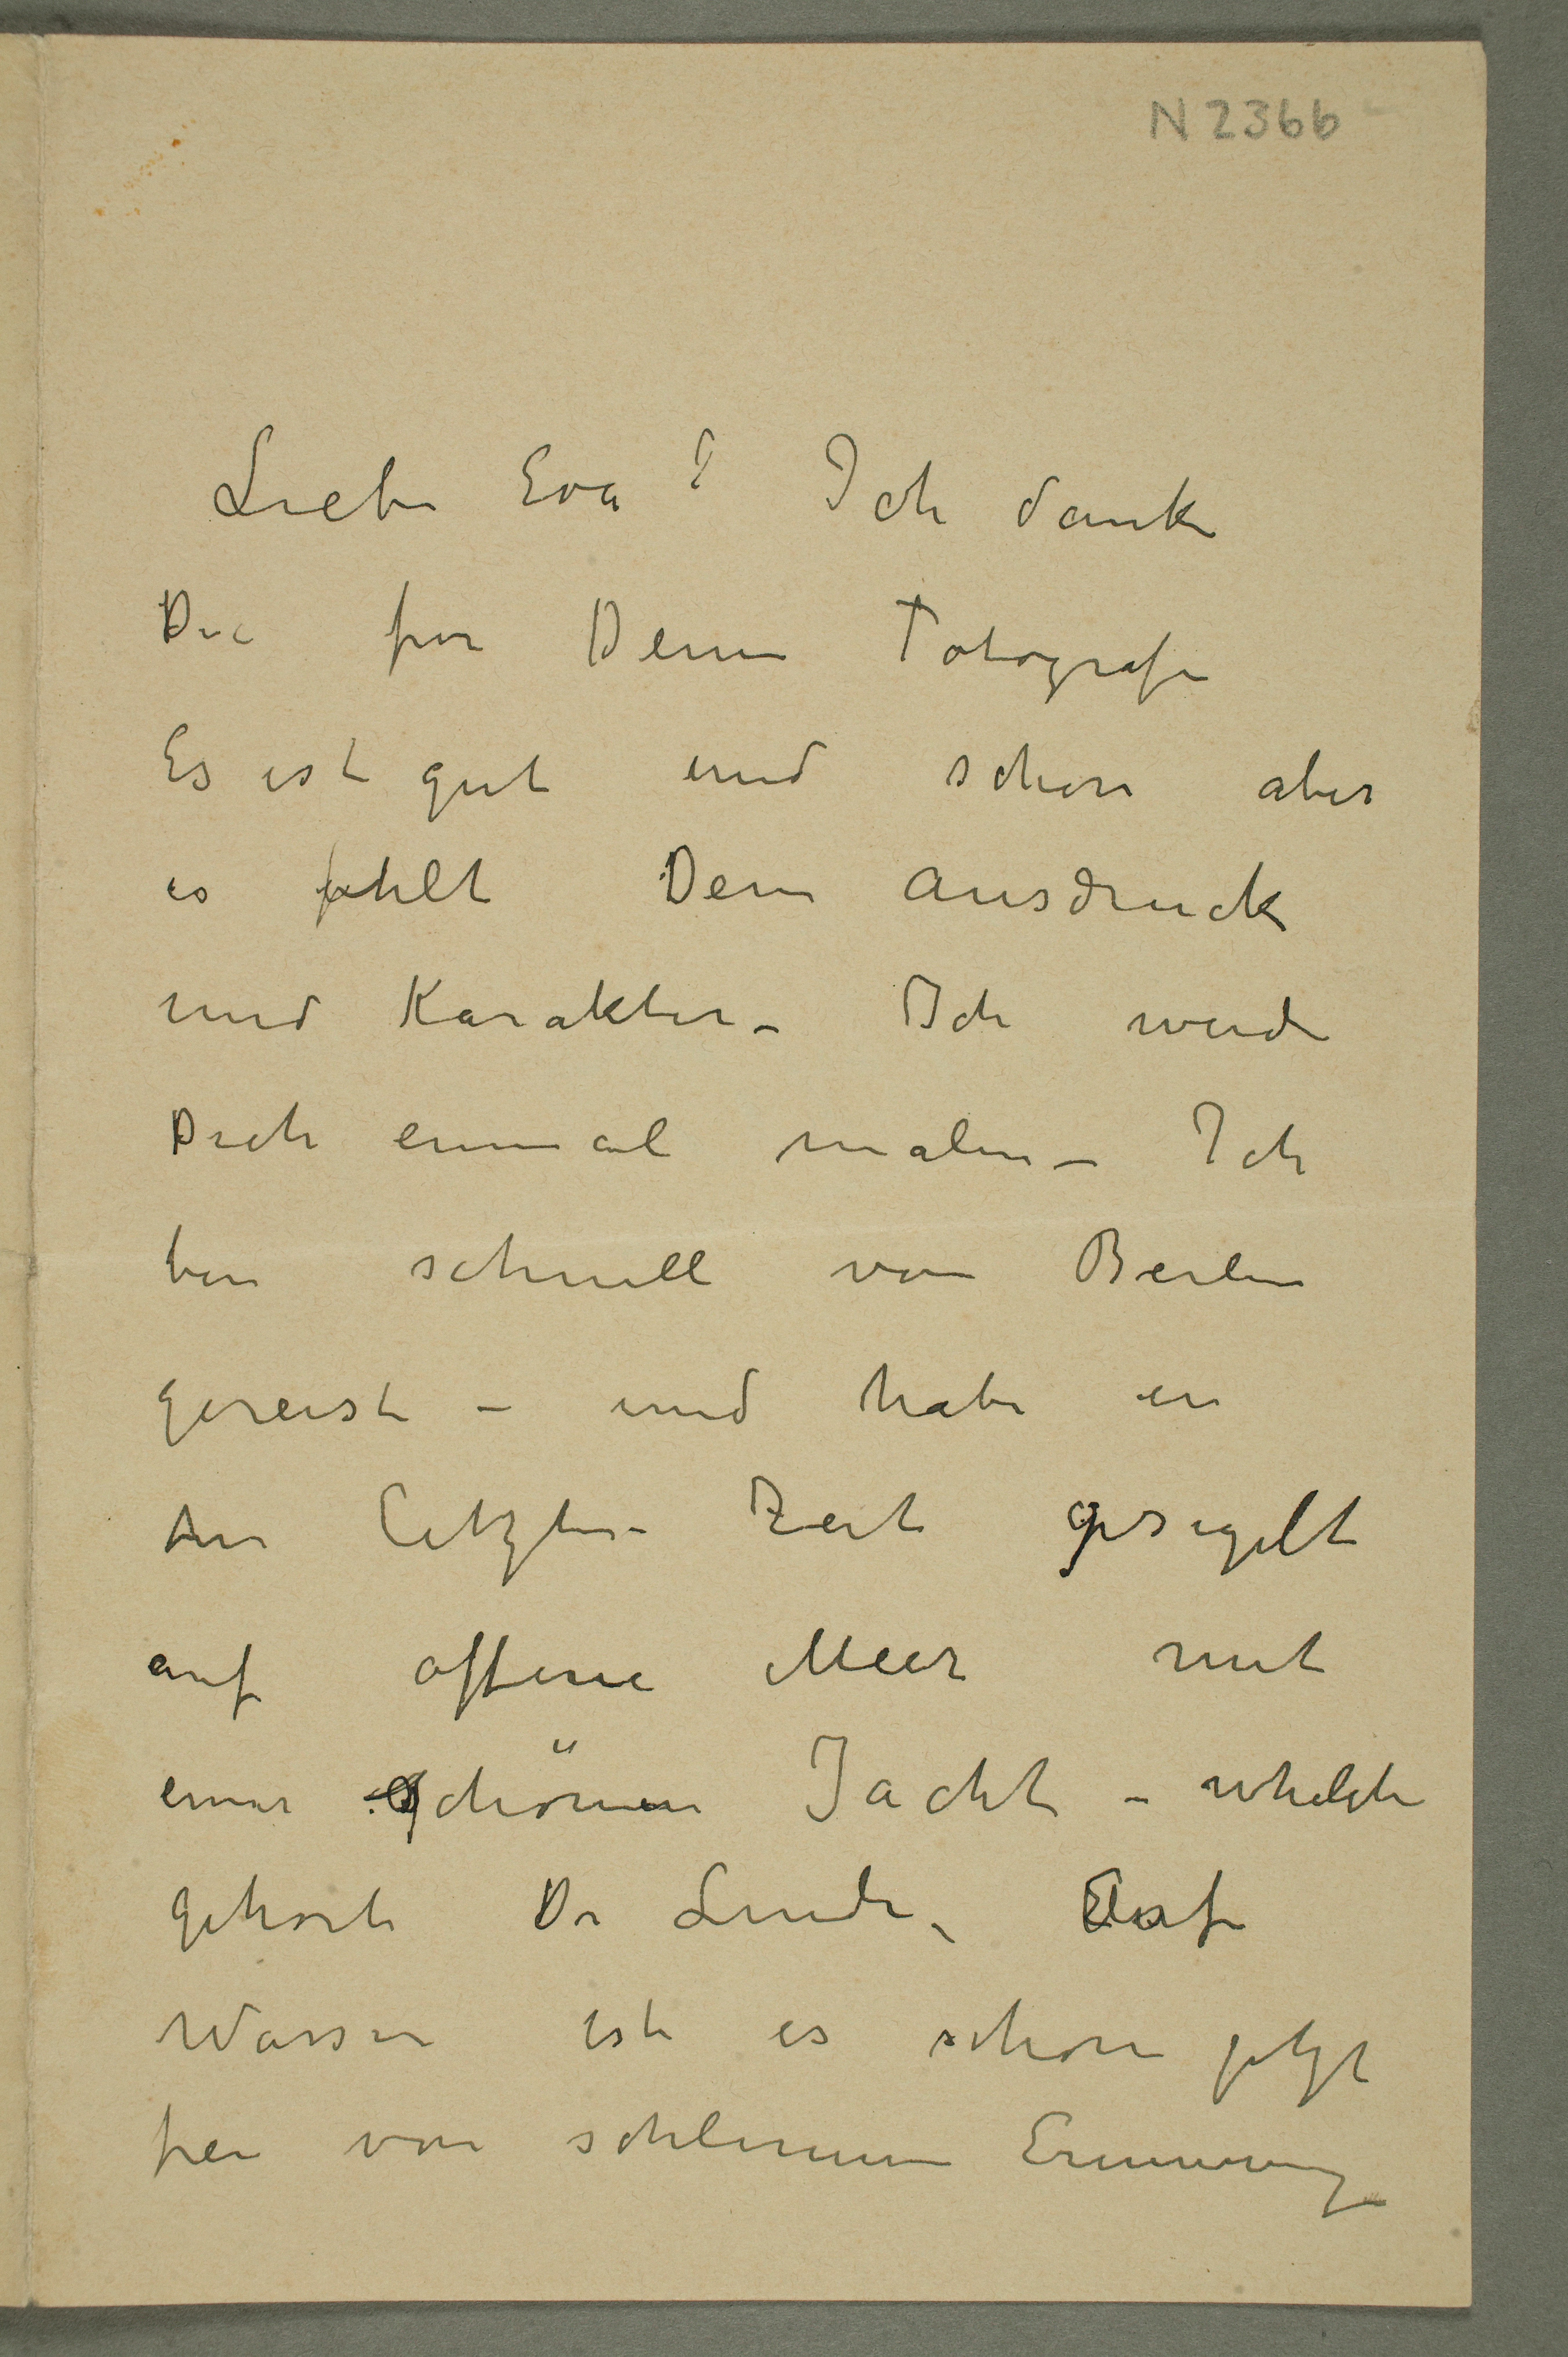 N 2366
Liebe Eva! Ich danke
Dir für Deine Fotografi
Es ist gut und schön aber
es fehlt Dein Ausdruck
und Karakter – Ich werde
Dich einmal malen – Ich
bin schnell von Berlin
gereist – und habe in
der letzten Zeit gesegelt
auf offene Meer mit
einer schönen Jacht – whelche
gehört Dr Linde, Auf
Wasser ist es schön jetzt
frei von schlimme Erinnerung